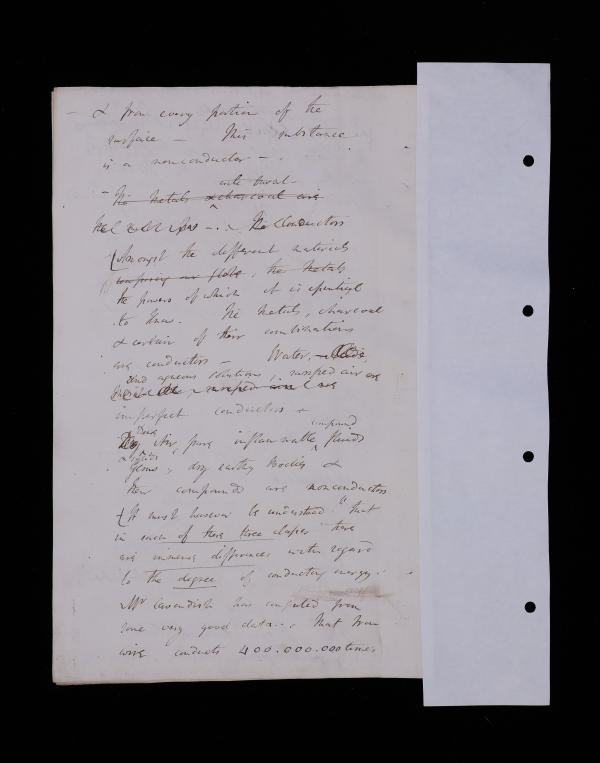 & from every portion of the
surface — This substance
is a nonconductor — .
- The metals & charcoal are
— . The Conductors
Amongst the different materials
composing our globe, the metals
the powers of which it is essential
to know. The metals, charcoal
& certain of their combinations
are conductors — Water,
and aqueous solutions, moist air are
imperfect conductors
compound
Dry air pure inflammable fluids
Gems, dry earthy bodies &
their compounds are nonconductors
It must however be understood that
in each of these three classes there
are immense differences with regard
to the degree of conducting energy.
Mr Cavendish has computed from
some very good data that Iron
wire conducts 400.000.000 times